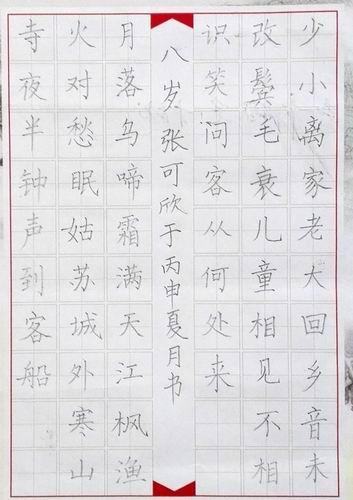 少小离家老大回乡音未
改鬓毛衰儿童相见不相
识笑问客从何处来
八岁张可欣于丙申夏月书
月落乌啼霜满天江枫渔
火对愁眠姑苏城外寒山
寺夜半钟声到客船